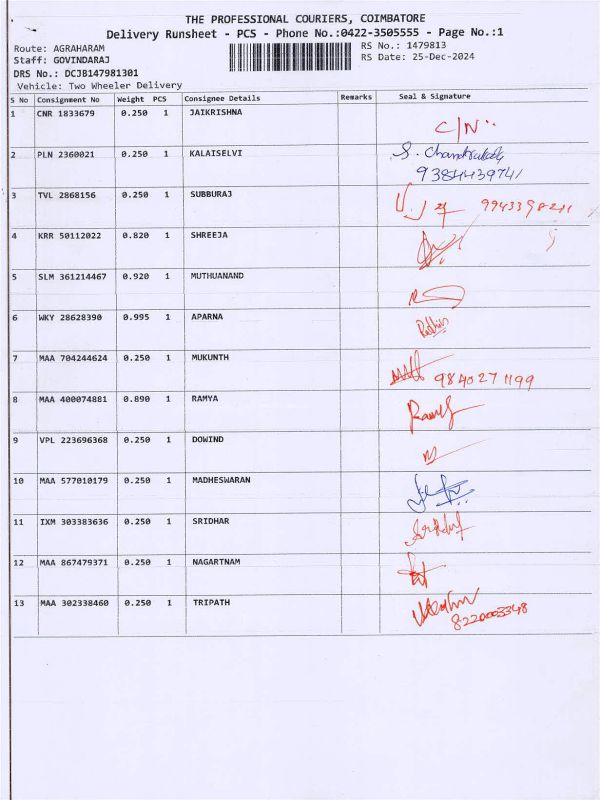 THE PROFESSIONAL COURIERS, COIMBATORE
Delivery Runsheet - PCS - Phone No.:0422-3505555 - Page No.:1
Route: AGRAHARAM
Staff: GOVINDARAJ
DRS No.: DCJB147981301
Vehicle: Two Wheeler Delivery
RS No.: 1479813
RS Date: 25-Dec-2024
S No Consignment No Weight PCS Consignee Details Remarks Seal & Signature
1 CNR 1833679 0.250 1 JAIKRISHNA C/N
2 PLN 2360021 0.250 1 KALAISELVI
9384439741
3 TVL 2868156 0.250 1 SUBBURAJ
4 KRR 50112022 0.820 1 SHREEJA
5 SLM 361214467 0.920 1 MUTHUANAND
6 WKY 28628390 0.995 1 APARNA
7 MAA 704244624 0.250 1 MUKUNTH 9840271199
8 MAA 400074881 0.890 1 RAMYA
9 VPL 223696368 0.250 1 DOWIND
10 MAA 577010179 0.250 1 MADHESWARAN
11 IXM 303383636 0.250 1 SRIDHAR
12 MAA 867479371 0.250 1 NAGARTNAM
13 MAA 302338460 0.250 1 TRIPATH
8220003348